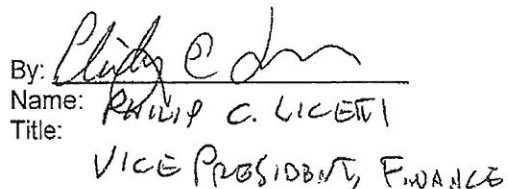 By:
Name: PHILIP C. LICETTI
Title:
VICE PRESIDENT, FINANCE